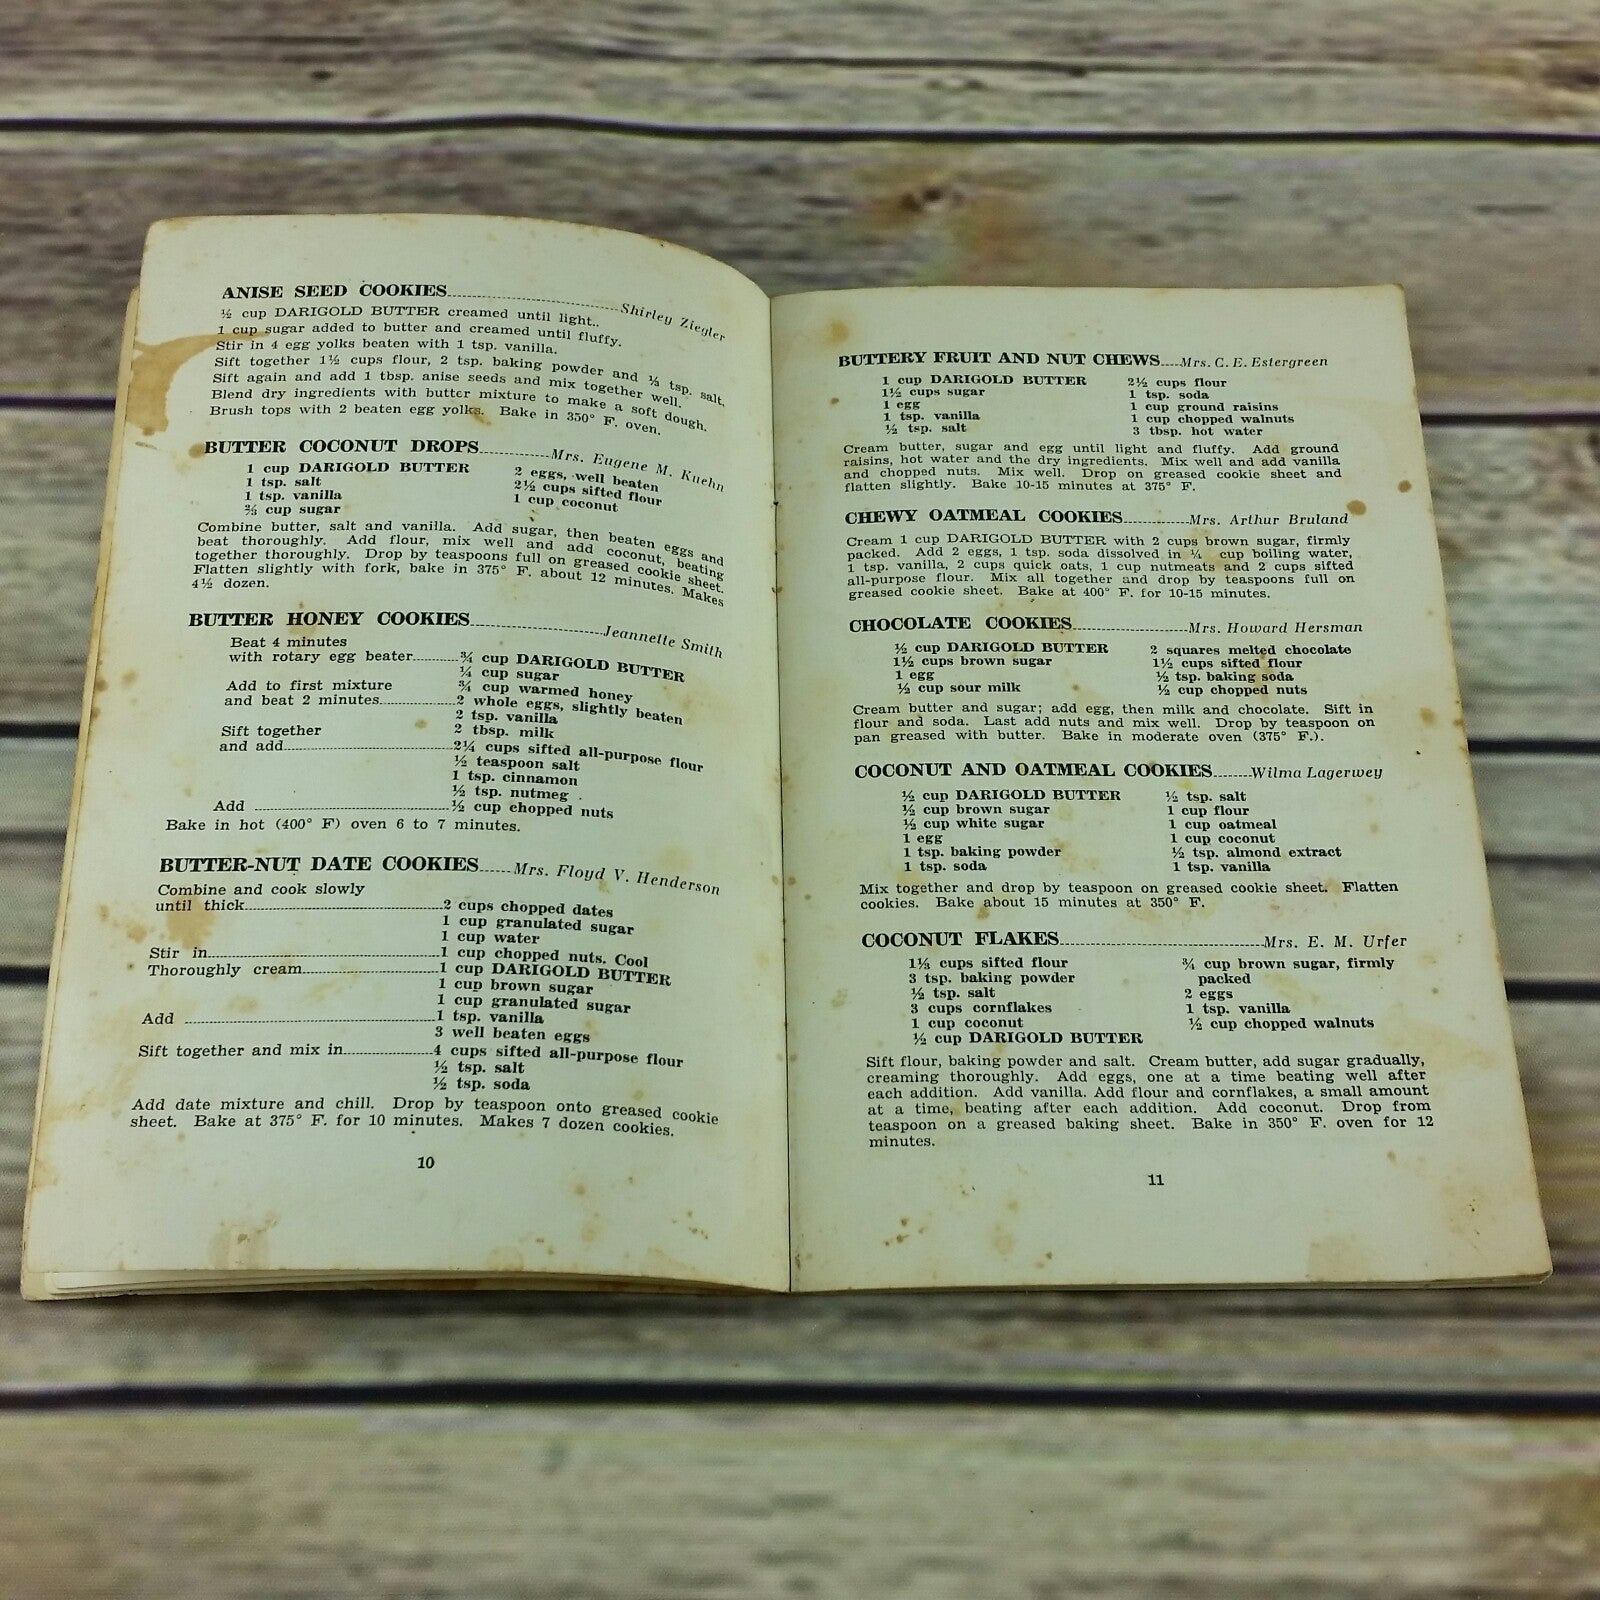 ANISE SEED COOKIES Shirley Ziegler
½ cup DARIGOLD BUTTER creamed until light..
1 cup sugar added to butter and creamed until fluffy.
Stir in 4 egg yolks beaten with 1 tsp. vanilla.
Sift together 1½ cups flour, 2 tsp. baking powder and ⅛ tsp. salt.
Sift again and add 1 tbsp. anise seeds and mix together well.
Blend dry ingredients with butter mixture to make a soft dough.
Brush tops with 2 beaten egg yolks. Bake in 350° F. oven.
BUTTER COCONUT DROPS Mrs. Eugene M. Kuehn
1 cup DARIGOLD BUTTER
1 tsp. salt
1 tsp. vanilla
⅔ cup sugar
2 eggs, well beaten
2½ cups sifted flour
1 cup coconut
Combine butter, salt and vanilla. Add sugar, then beaten eggs and
beat thoroughly. Add flour, mix well and add coconut, beating
together thoroughly. Drop by teaspoons full on greased cookie sheet.
Flatten slightly with fork, bake in 375° F. about 12 minutes. Makes
4½ dozen.
BUTTER HONEY COOKIES Jeannette Smith
Beat 4 minutes
with rotary egg beater ¾ cup DARIGOLD BUTTER
¼ cup sugar
Add to first mixture ¾ cup warmed honey
and beat 2 minutes 2 whole eggs, slightly beaten
2 tsp. vanilla
Sift together 2 tbsp. milk
and add 2¼ cups sifted all-purpose flour
½ teaspoon salt
1 tsp. cinnamon
½ tsp. nutmeg
Add ½ cup chopped nuts
Bake in hot (400° F) oven 6 to 7 minutes.
BUTTER-NUT DATE COOKIES Mrs. Floyd V. Henderson
Combine and cook slowly
until thick 2 cups chopped dates
1 cup granulated sugar
1 cup water
Stir in 1 cup chopped nuts. Cool
Thoroughly cream 1 cup DARIGOLD BUTTER
1 cup brown sugar
1 cup granulated sugar
Add 1 tsp. vanilla
3 well beaten eggs
Sift together and mix in 4 cups sifted all-purpose flour
½ tsp. salt
½ tsp. soda
Add date mixture and chill. Drop by teaspoon onto greased cookie
sheet. Bake at 375° F. for 10 minutes. Makes 7 dozen cookies.
10
BUTTERY FRUIT AND NUT CHEWS Mrs. C. E. Estergreen
1 cup DARIGOLD BUTTER
1½ cups sugar
1 egg
1 tsp. vanilla
½ tsp. salt
2½ cups flour
1 tsp. soda
1 cup ground raisins
1 cup chopped walnuts
3 tbsp. hot water
Cream butter, sugar and egg until light and fluffy. Add ground
raisins, hot water and the dry ingredients. Mix well and add vanilla
and chopped nuts. Mix well. Drop on greased cookie sheet and
flatten slightly. Bake 10-15 minutes at 375° F.
CHEWY OATMEAL COOKIES Mrs. Arthur Bruland
Cream 1 cup DARIGOLD BUTTER with 2 cups brown sugar, firmly
packed. Add 2 eggs, 1 tsp. soda dissolved in ¼ cup boiling water,
1 tsp. vanilla, 2 cups quick oats, 1 cup nutmeats and 2 cups sifted
all-purpose flour. Mix all together and drop by teaspoons full on
greased cookie sheet. Bake at 400° F. for 10-15 minutes.
CHOCOLATE COOKIES Mrs. Howard Hersman
½ cup DARIGOLD BUTTER
1½ cups brown sugar
1 egg
½ cup sour milk
2 squares melted chocolate
1½ cups sifted flour
½ tsp. baking soda
½ cup chopped nuts
Cream butter and sugar; add egg, then milk and chocolate. Sift in
flour and soda. Last add nuts and mix well. Drop by teaspoon on
pan greased with butter. Bake in moderate oven (375° F.).
COCONUT AND OATMEAL COOKIES Wilma Lagerwey
½ cup DARIGOLD BUTTER
½ cup brown sugar
½ cup white sugar
1 egg
1 tsp. baking powder
1 tsp. soda
½ tsp. salt
1 cup flour
1 cup oatmeal
1 cup coconut
½ tsp. almond extract
1 tsp. vanilla
Mix together and drop by teaspoon on greased cookie sheet. Flatten
cookies. Bake about 15 minutes at 350° F.
COCONUT FLAKES Mrs. E. M. Urfer
1⅓ cups sifted flour
3 tsp. baking powder
½ tsp. salt
3 cups cornflakes
1 cup coconut
½ cup DARIGOLD BUTTER
¾ cup brown sugar, firmly
packed
2 eggs
1 tsp. vanilla
½ cup chopped walnuts
Sift flour, baking powder and salt. Cream butter, add sugar gradually,
creaming thoroughly. Add eggs, one at a time beating well after
each addition. Add vanilla. Add flour and cornflakes, a small amount
at a time, beating after each addition. Add coconut. Drop from
teaspoon on a greased baking sheet. Bake in 350° F. oven for 12
minutes.
11